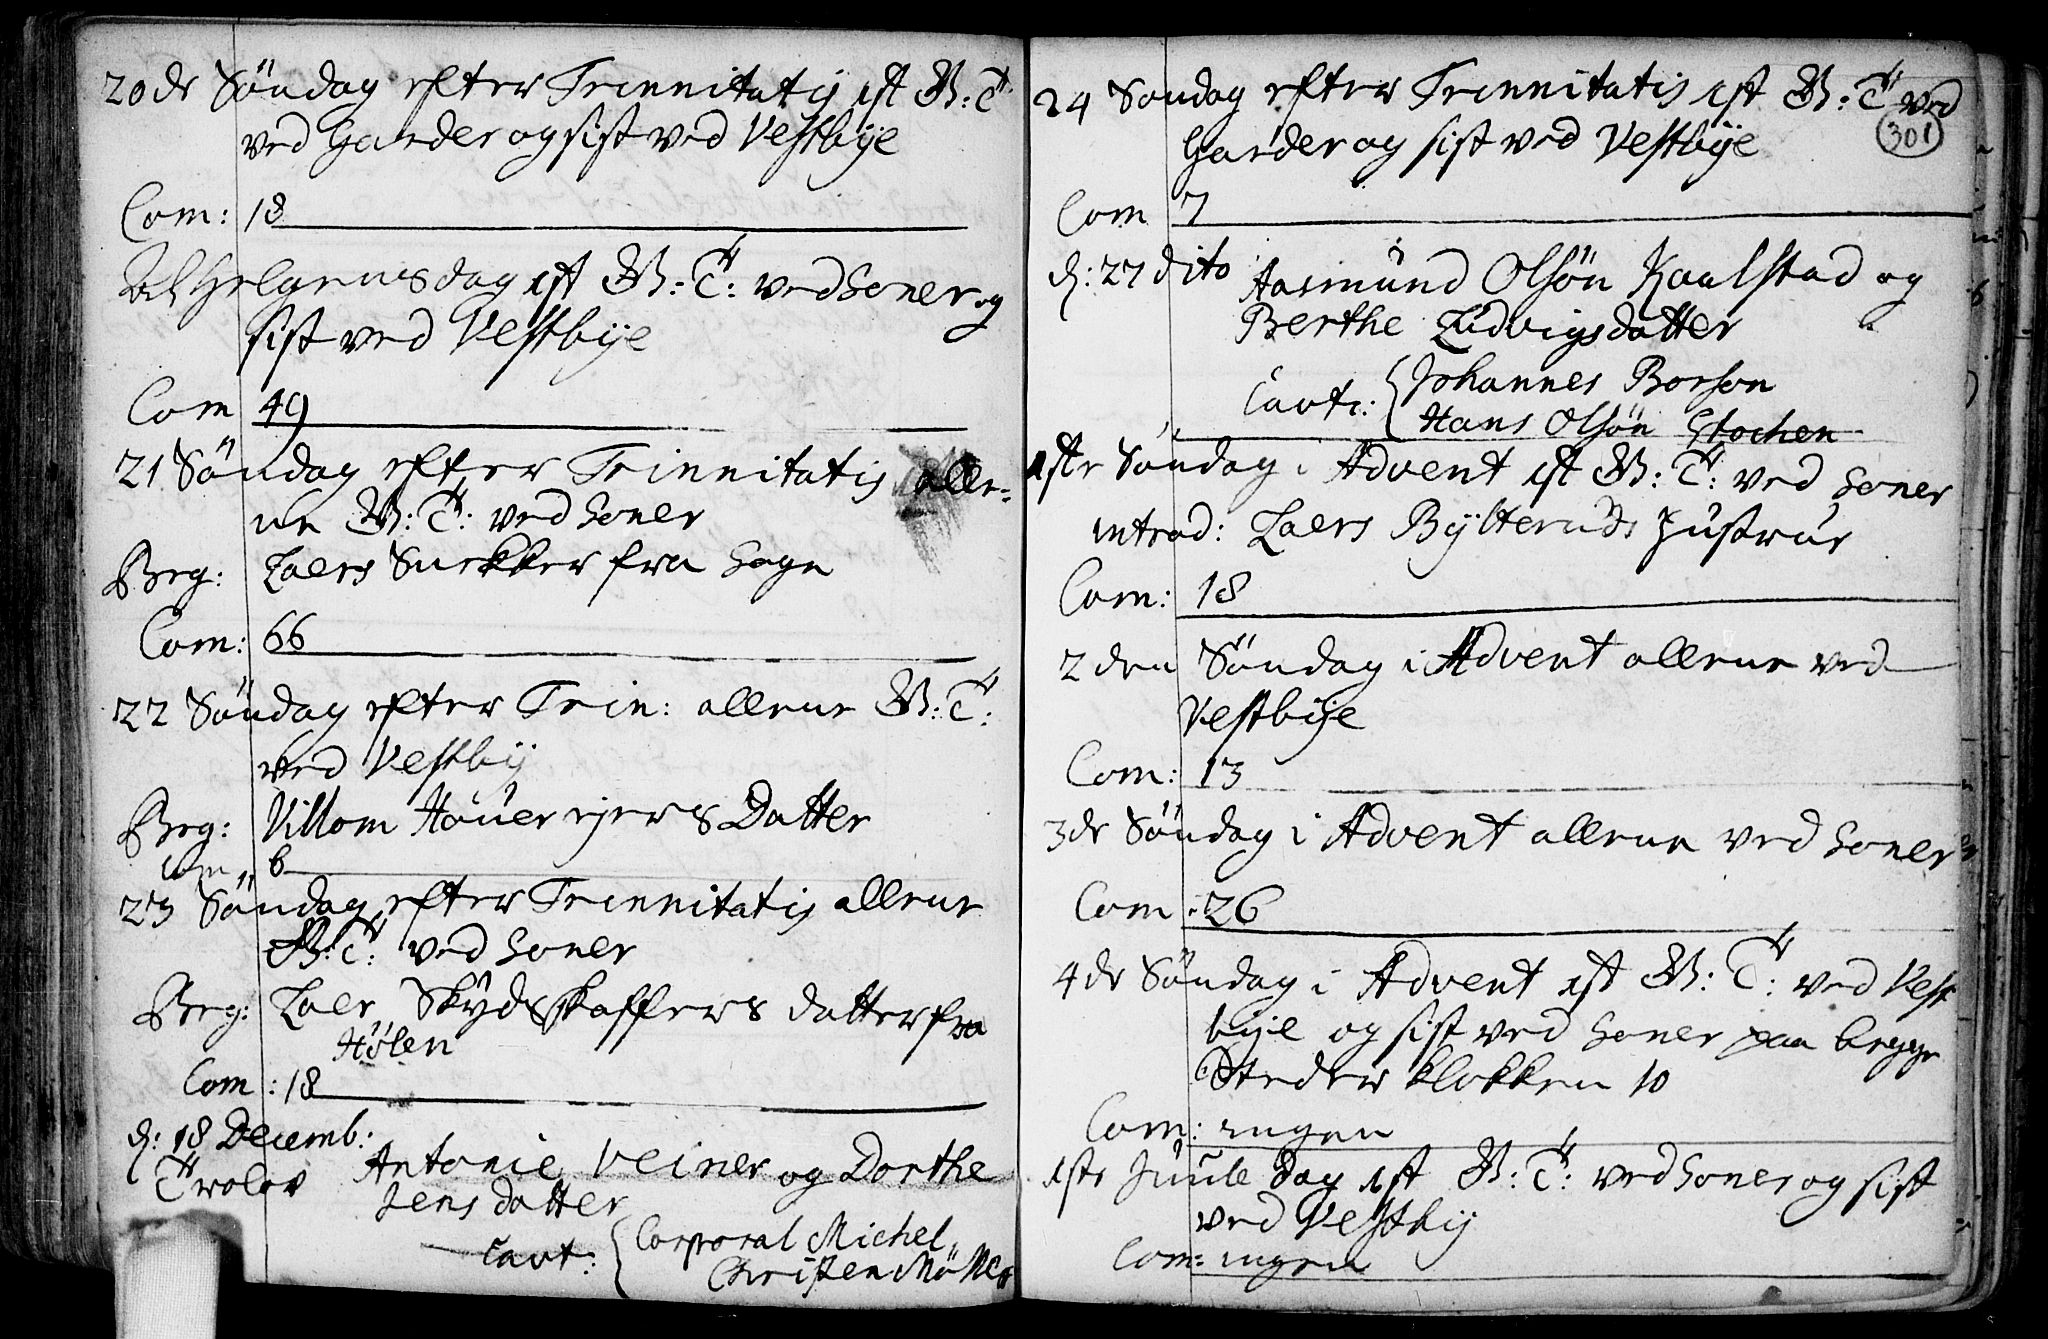 20de Söndag efter Trinnitatis 1st G: T:
ved Garder og sist ved Vestbÿe
Com: 18
Alhelgensdag 1st G: T: ved Soner og
sist ved Vestbÿe
Com 49
21 Söndag efter Trinnitatis alle-
ne G: T: ved Soner
Beg: Laers Snekker fra Sogn
Com: 66
22 Söndag efter Trin: allene G: T:
ved Vestbÿ
Beg: Villom Houer ejers Datter
Com 6
23 Söndag efter Trinnitatis allene
G: T: ved Soner
Beg: Laer Skÿdsskaffers datter fra
Hölen
Com: 18
d: 18 Decemb:
Trolov Antonie Veiner og Dorthe
Jens datter
Cavt: Corporal Michel
Christen Möller
24 Söndag efter Trinnitatis 1st G: T: ved
301
Garder og sist ved Vestbÿe
Com 7
d: 27 dito Aasmünd Olsön Kaalstad og
Berthe Lüdvigsdatter
Cavt: Johannes Borson
Hans Olsön Stochen
1ste Söndag i Advent 1st G: T: ved Soner
introd: Laers Bÿlteruds Hustrue
Com: 18
2den Söndag i Advent allene ved
Vestbÿe
Com: 13
3de Söndag i Advent allene ved Soner
Com: 26
4de Söndag i Advent 1st G: T: ved Vest
bÿe og sist ved Soner paa begge
Steder klokken 10
Com: ingen
1ste Juule dag 1st G: T: ved Soner og sist
ved Vestbÿ
Com: ingen